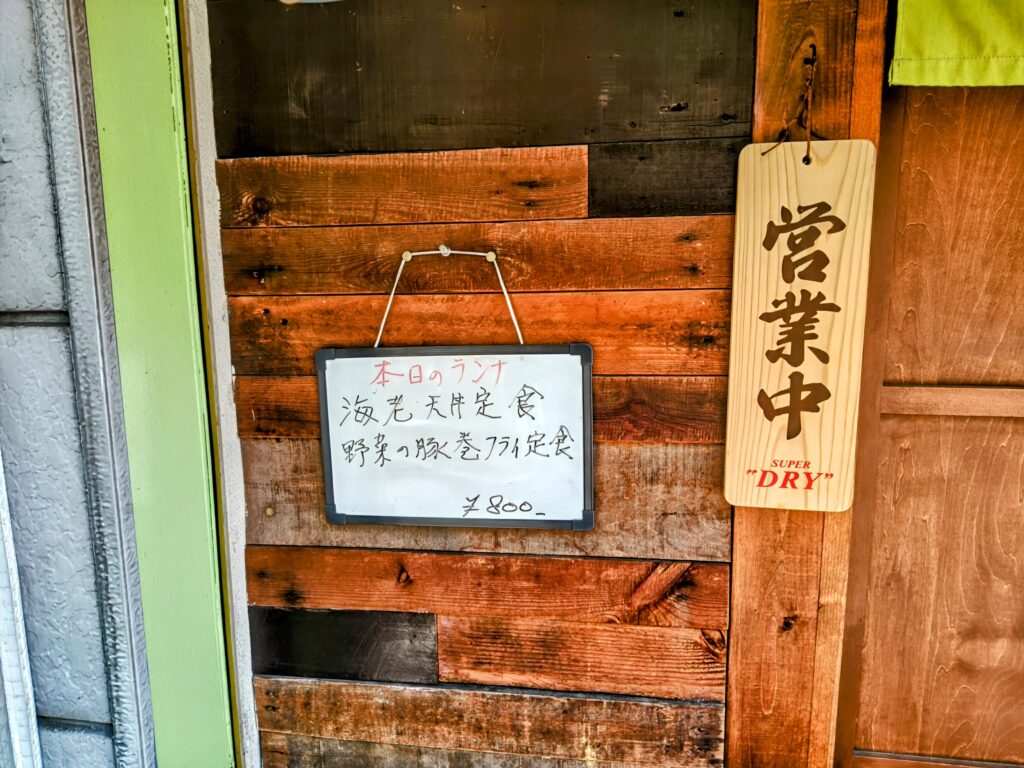 本日のランチ
海老天丼定食
野菜の豚巻フライ定食
¥800-
営業中
SUPER
"DRY"